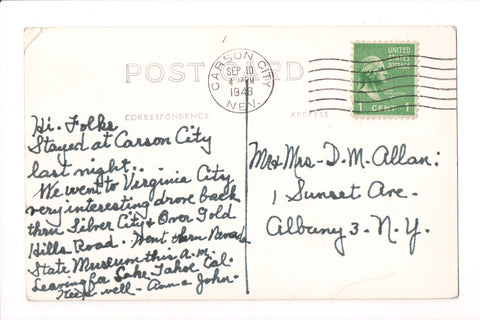 POST CARD
CARSON CITY
SEP 10
1948
NEV.
UNITED
STATES POSTAGE
1 CENT 1
CORRESPONDENCE
ADDRESS
Hi. Folks
Stayed at Carson City
last night..
We went to Virginia City
very interesting drove back
thru Silver City & Over Gold
Hills Road. Went thru Nevada
State Museum this A.M.
Leaving for Lake Tahoe Cal.
Keep well - Ann & John.
Mr & Mrs - D. M. Allan:
1 Sunset Ave.
Albany 3. N. Y.